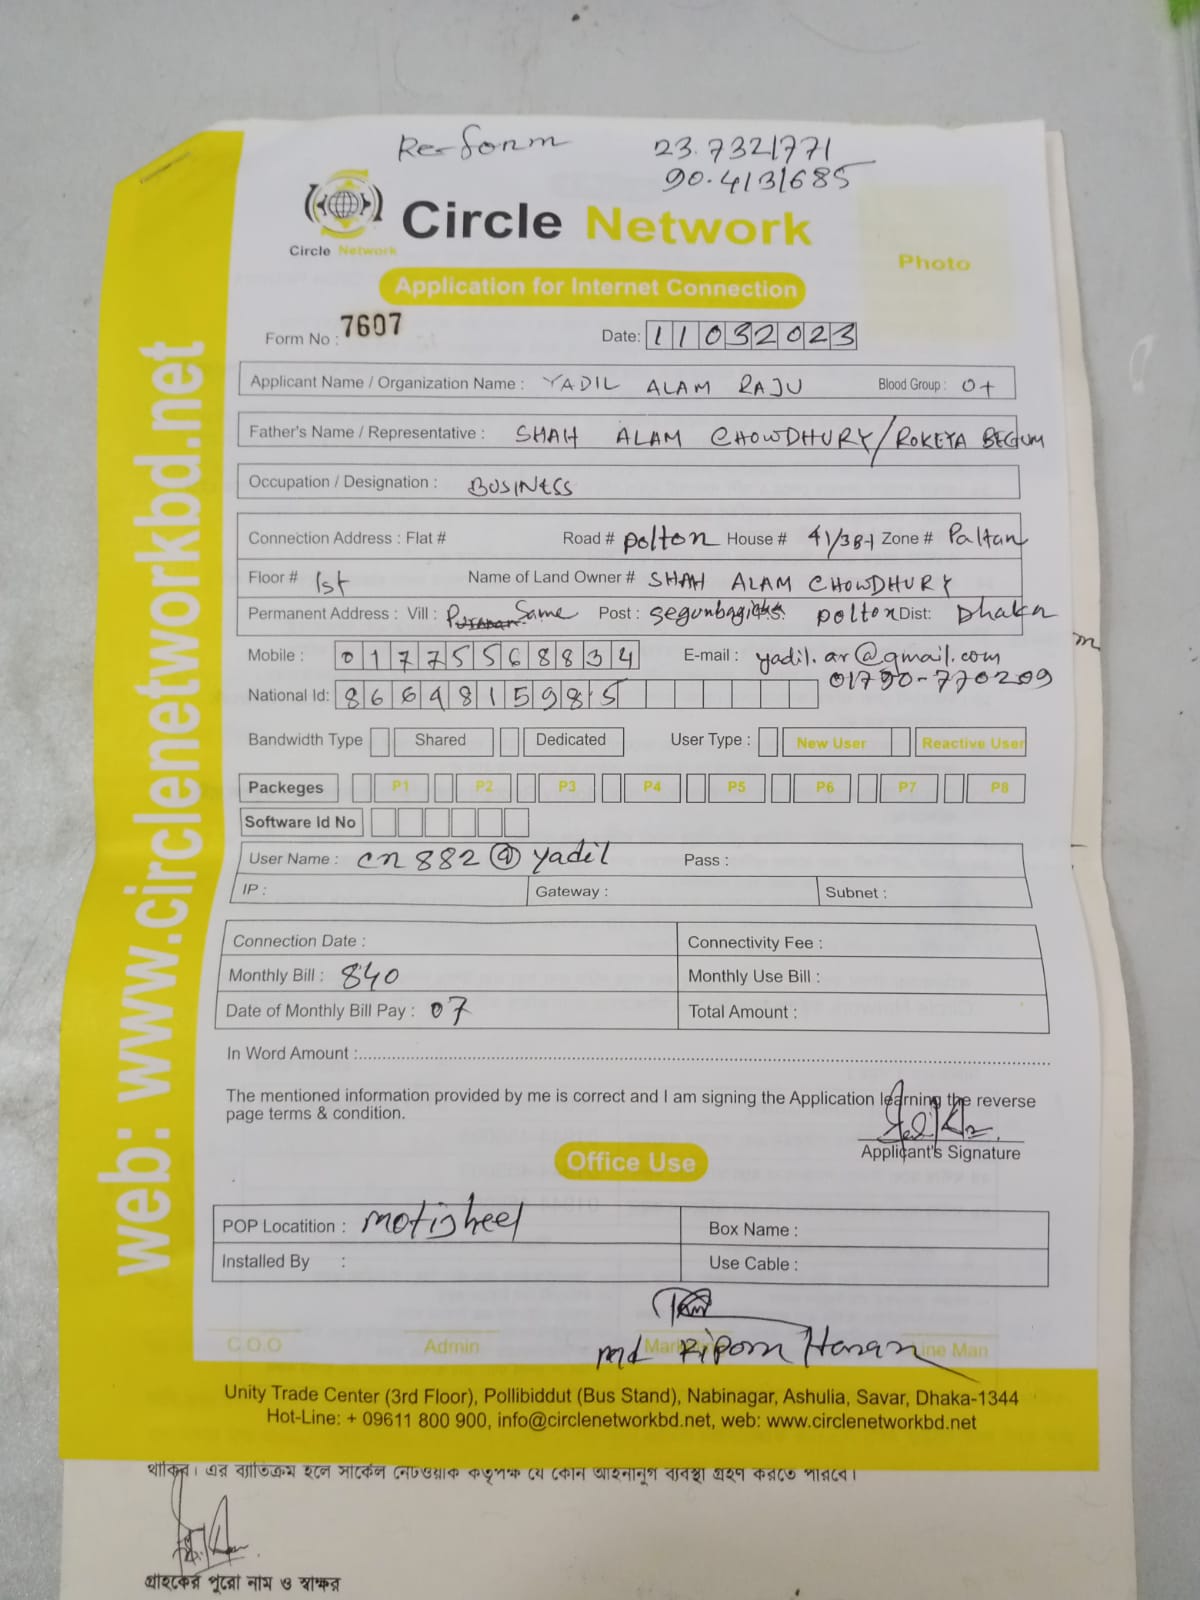 Re-form 23.7321771
90.4131685
Circle Network
Circle Network
Photo
Application for Internet Connection
Form No : 7607 Date: 11032023
Applicant Name / Organization Name : YADIL ALAM RAJU Blood Group : O+
Father's Name / Representative : SHAH ALAM CHOWDHURY/ROKEYA BEGUM
Occupation / Designation : BUSINESS
Connection Address : Flat # Road # polton House # 41/3B-1 Zone # Paltan
Floor # 1st Name of Land Owner # SHAH ALAM CHOWDHURY
Permanent Address : Vill : Same Post : polton Dist: Dhaka
Mobile : 01775568834 E-mail : yadil.ar@gmail.com
01790-770209
National Id: 8669815985
Bandwidth Type Shared Dedicated User Type : New User Reactive User
Packeges P1 P2 P3 P4 P5 P6 P7 P8
Software Id No
User Name : cn882@yadil Pass :
IP : Gateway : Subnet :
Connection Date : Connectivity Fee :
Monthly Bill : 840 Monthly Use Bill :
Date of Monthly Bill Pay : 07 Total Amount :
In Word Amount :
The mentioned information provided by me is correct and I am signing the Application learning the reverse
page terms & condition.
Applicant's Signature
Office Use
POP Locatition : motijheel Box Name :
Installed By : Use Cable :
C.O.O Admin Line Man
md Ripom Hasan
Unity Trade Center (3rd Floor), Pollibiddut (Bus Stand), Nabinagar, Ashulia, Savar, Dhaka-1344
Hot-Line: + 09611 800 900, info@circlenetworkbd.net, web: www.circlenetworkbd.net
web: www.circlenetworkbd.net
থাকিব। এর ব্যতিক্রম হলে সার্কেল নেটওয়ার্ক কতৃপক্ষ যে কোন আইনানুগ ব্যবস্থা গ্রহণ করতে পারবে।
গ্রাহকের পুরো নাম ও স্বাক্ষর